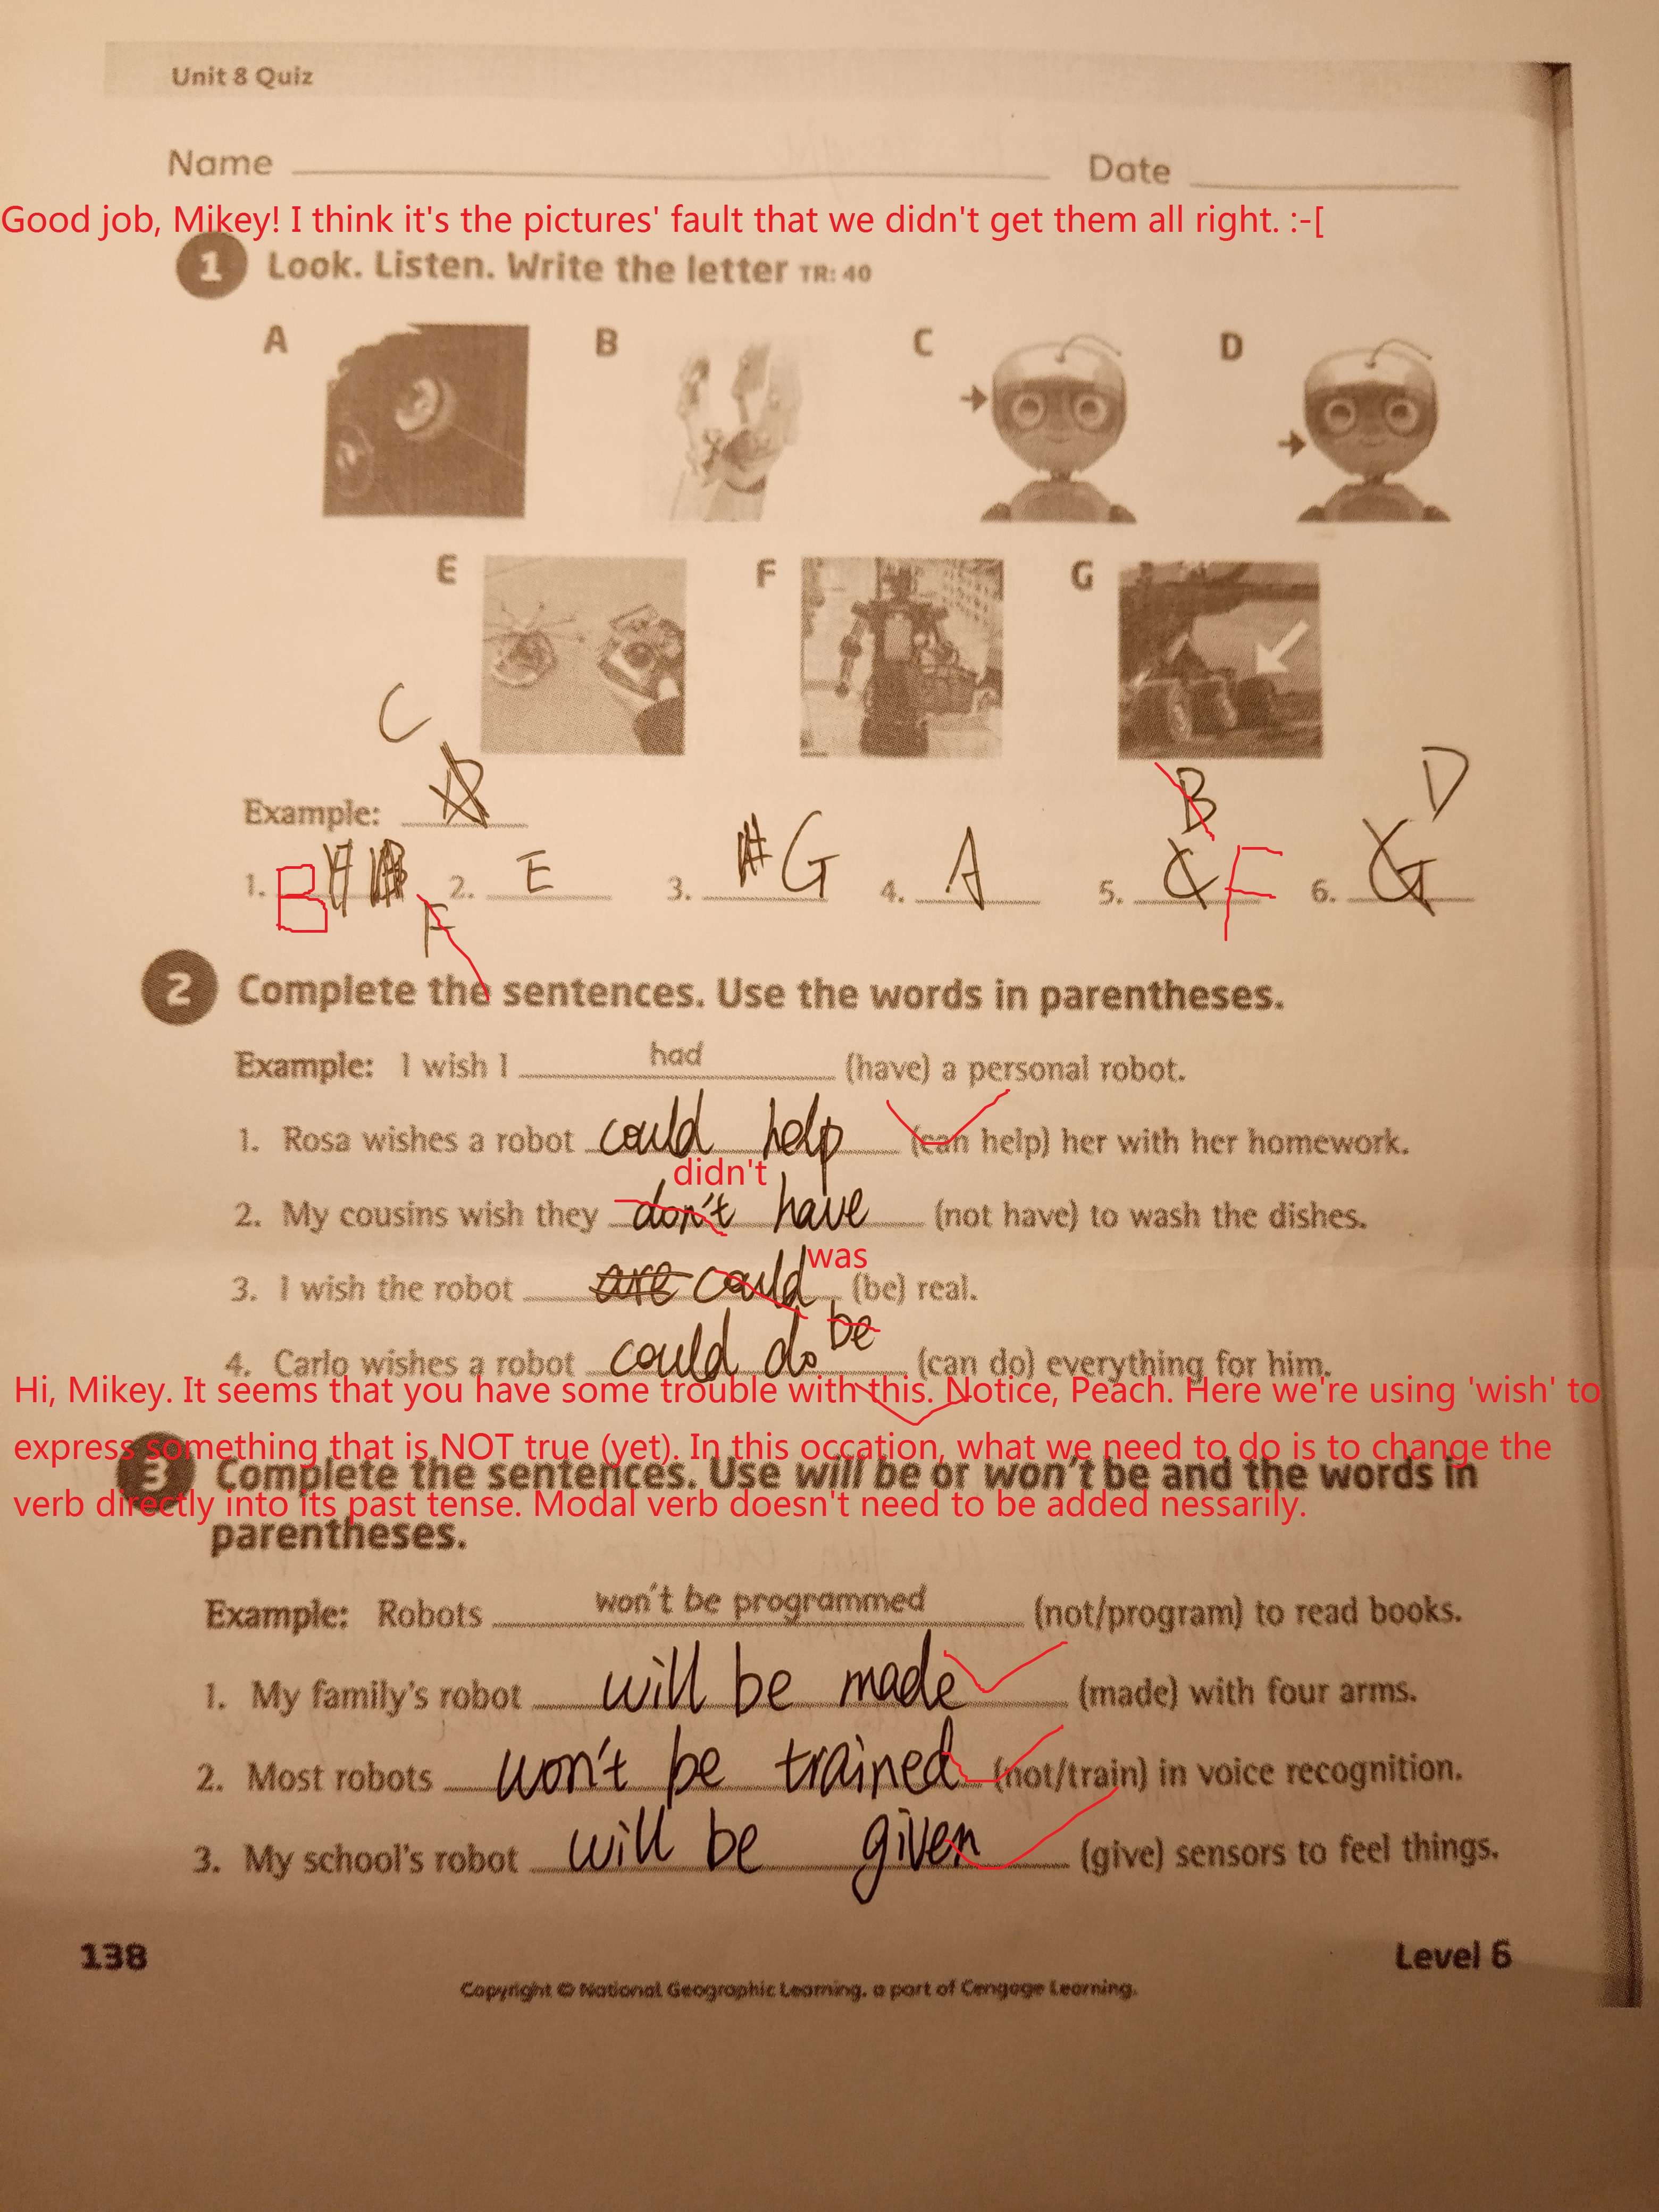 Unit 8 Quiz
Name Date
Good job, Mikey! I think it's the pictures' fault that we didn't get them all right. :-[
1 Look. Listen. Write the letter TR: 40
A B C D
E F G
C
B D
Example:
1. B 2. E 3. G 4. A 5. C F 6. G
F
2 Complete the sentences. Use the words in parentheses.
Example: I wish I had (have) a personal robot.
1. Rosa wishes a robot could help (can help) her with her homework.
didn't
2. My cousins wish they don't have (not have) to wash the dishes.
was
3. I wish the robot are could (be) real.
be
4. Carlo wishes a robot could do (can do) everything for him.
Hi, Mikey. It seems that you have some trouble with this. Notice, Peach. Here we're using 'wish' to
express something that is NOT true (yet). In this occation, what we need to do is to change the
3 Complete the sentences. Use will be or won't be and the words in
verb directly into its past tense. Modal verb doesn't need to be added nessarily.
parentheses.
Example: Robots won't be programmed (not/program) to read books.
1. My family's robot will be made (made) with four arms.
2. Most robots won't be trained (not/train) in voice recognition.
3. My school's robot will be given (give) sensors to feel things.
138 Level 6
Copyright © National Geographic Learning, a part of Cengage Learning.